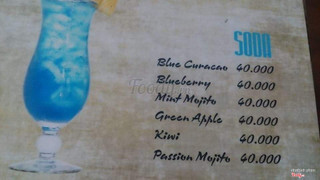 SODA
Blue Curacao 40.000
Blueberry 40.000
Mint Mojito 40.000
Green Apple 40.000
Kiwi 40.000
Passion Mojito 40.000